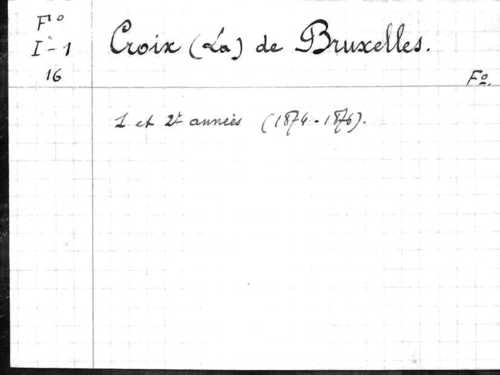 Fº
I-1
16
Croix (La) de Bruxelles.
Fº.
1 et 2e années (1874-1876).